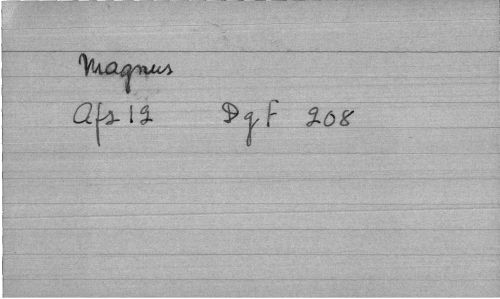 Magnus
Afs 12 DgF 208